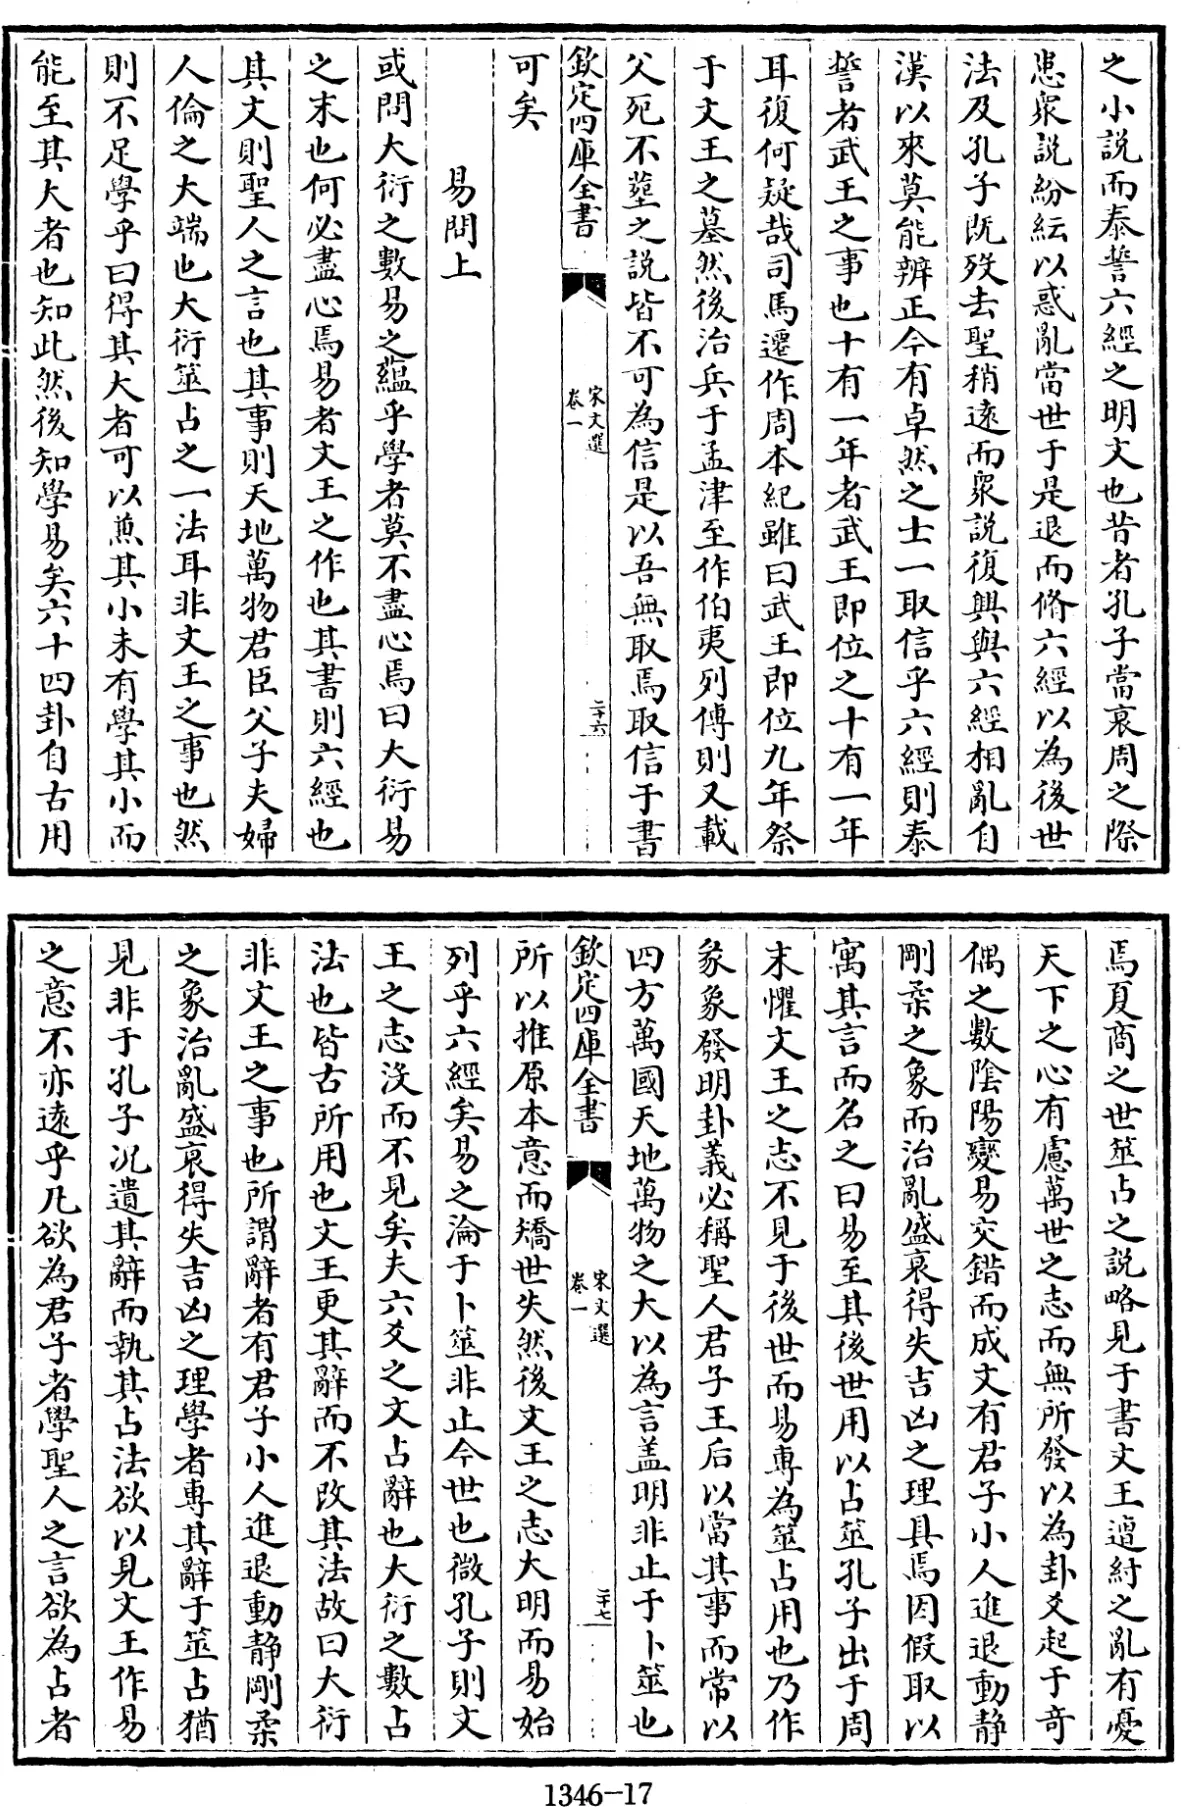 之小説而泰誓六經之明文也昔者孔子當衰周之際
患衆說紛紜以惑亂當世于是退而脩六經以為後世
法及孔子既殁去聖稍遠而衆說復興與六經相亂自
漢以來莫能辨正今有卓然之士一取信乎六經則泰
誓者武王之事也十有一年者武王即位之十有一年
耳復何疑哉司馬遷作周本紀雖曰武王即位九年祭
于文王之墓然後治兵于孟津至作伯夷列傳則又載
父死不塟之說皆不可為信是以吾無取焉取信于書
欽定四庫全書
宋文選
卷一
二十六
可矣
易問上
或問大衍之數易之蘊乎學者莫不盡心焉曰大衍易
之末也何必盡心焉易者文王之作也其書則六經也
其文則聖人之言也其事則天地萬物君臣父子夫婦
人倫之大端也大衍筮占之一法耳非文王之事也然
則不足學乎曰得其大者可以兼其小未有學其小而
能至其大者也知此然後知學易矣六十四卦自古用
焉夏商之世筮占之説略見于書文王遭紂之亂有憂
天下之心有慮萬世之志而無所發以為卦爻起于奇
偶之數陰陽變易交錯而成文有君子小人進退動静
剛柔之象而治亂盛衰得失吉凶之理具焉因假取以
寓其言而名之曰易至其後世用以占筮孔子出于周
末懼文王之志不見于後世而易專為筮占用也乃作
彖象發明卦義必稱聖人君子王后以當其事而常以
四方萬國天地萬物之大以為言盖明非止于卜筮也
欽定四庫全書
宋文選
卷一
二十七
所以推原本意而矯世失然後文王之志大明而易始
列乎六經矣易之淪于卜筮非止今世也微孔子則文
王之志没而不見矣夫六爻之文占辭也大衍之數占
法也皆古所用也文王更其辭而不改其法故曰大衍
非文王之事也所謂辭者有君子小人進退動静剛柔
之象治亂盛衰得失吉凶之理學者專其辭于筮占猶
見非于孔子况遺其辭而執其占法欲以見文王作易
之意不亦遠乎凡欲為君子者學聖人之言欲為占者
1346-17